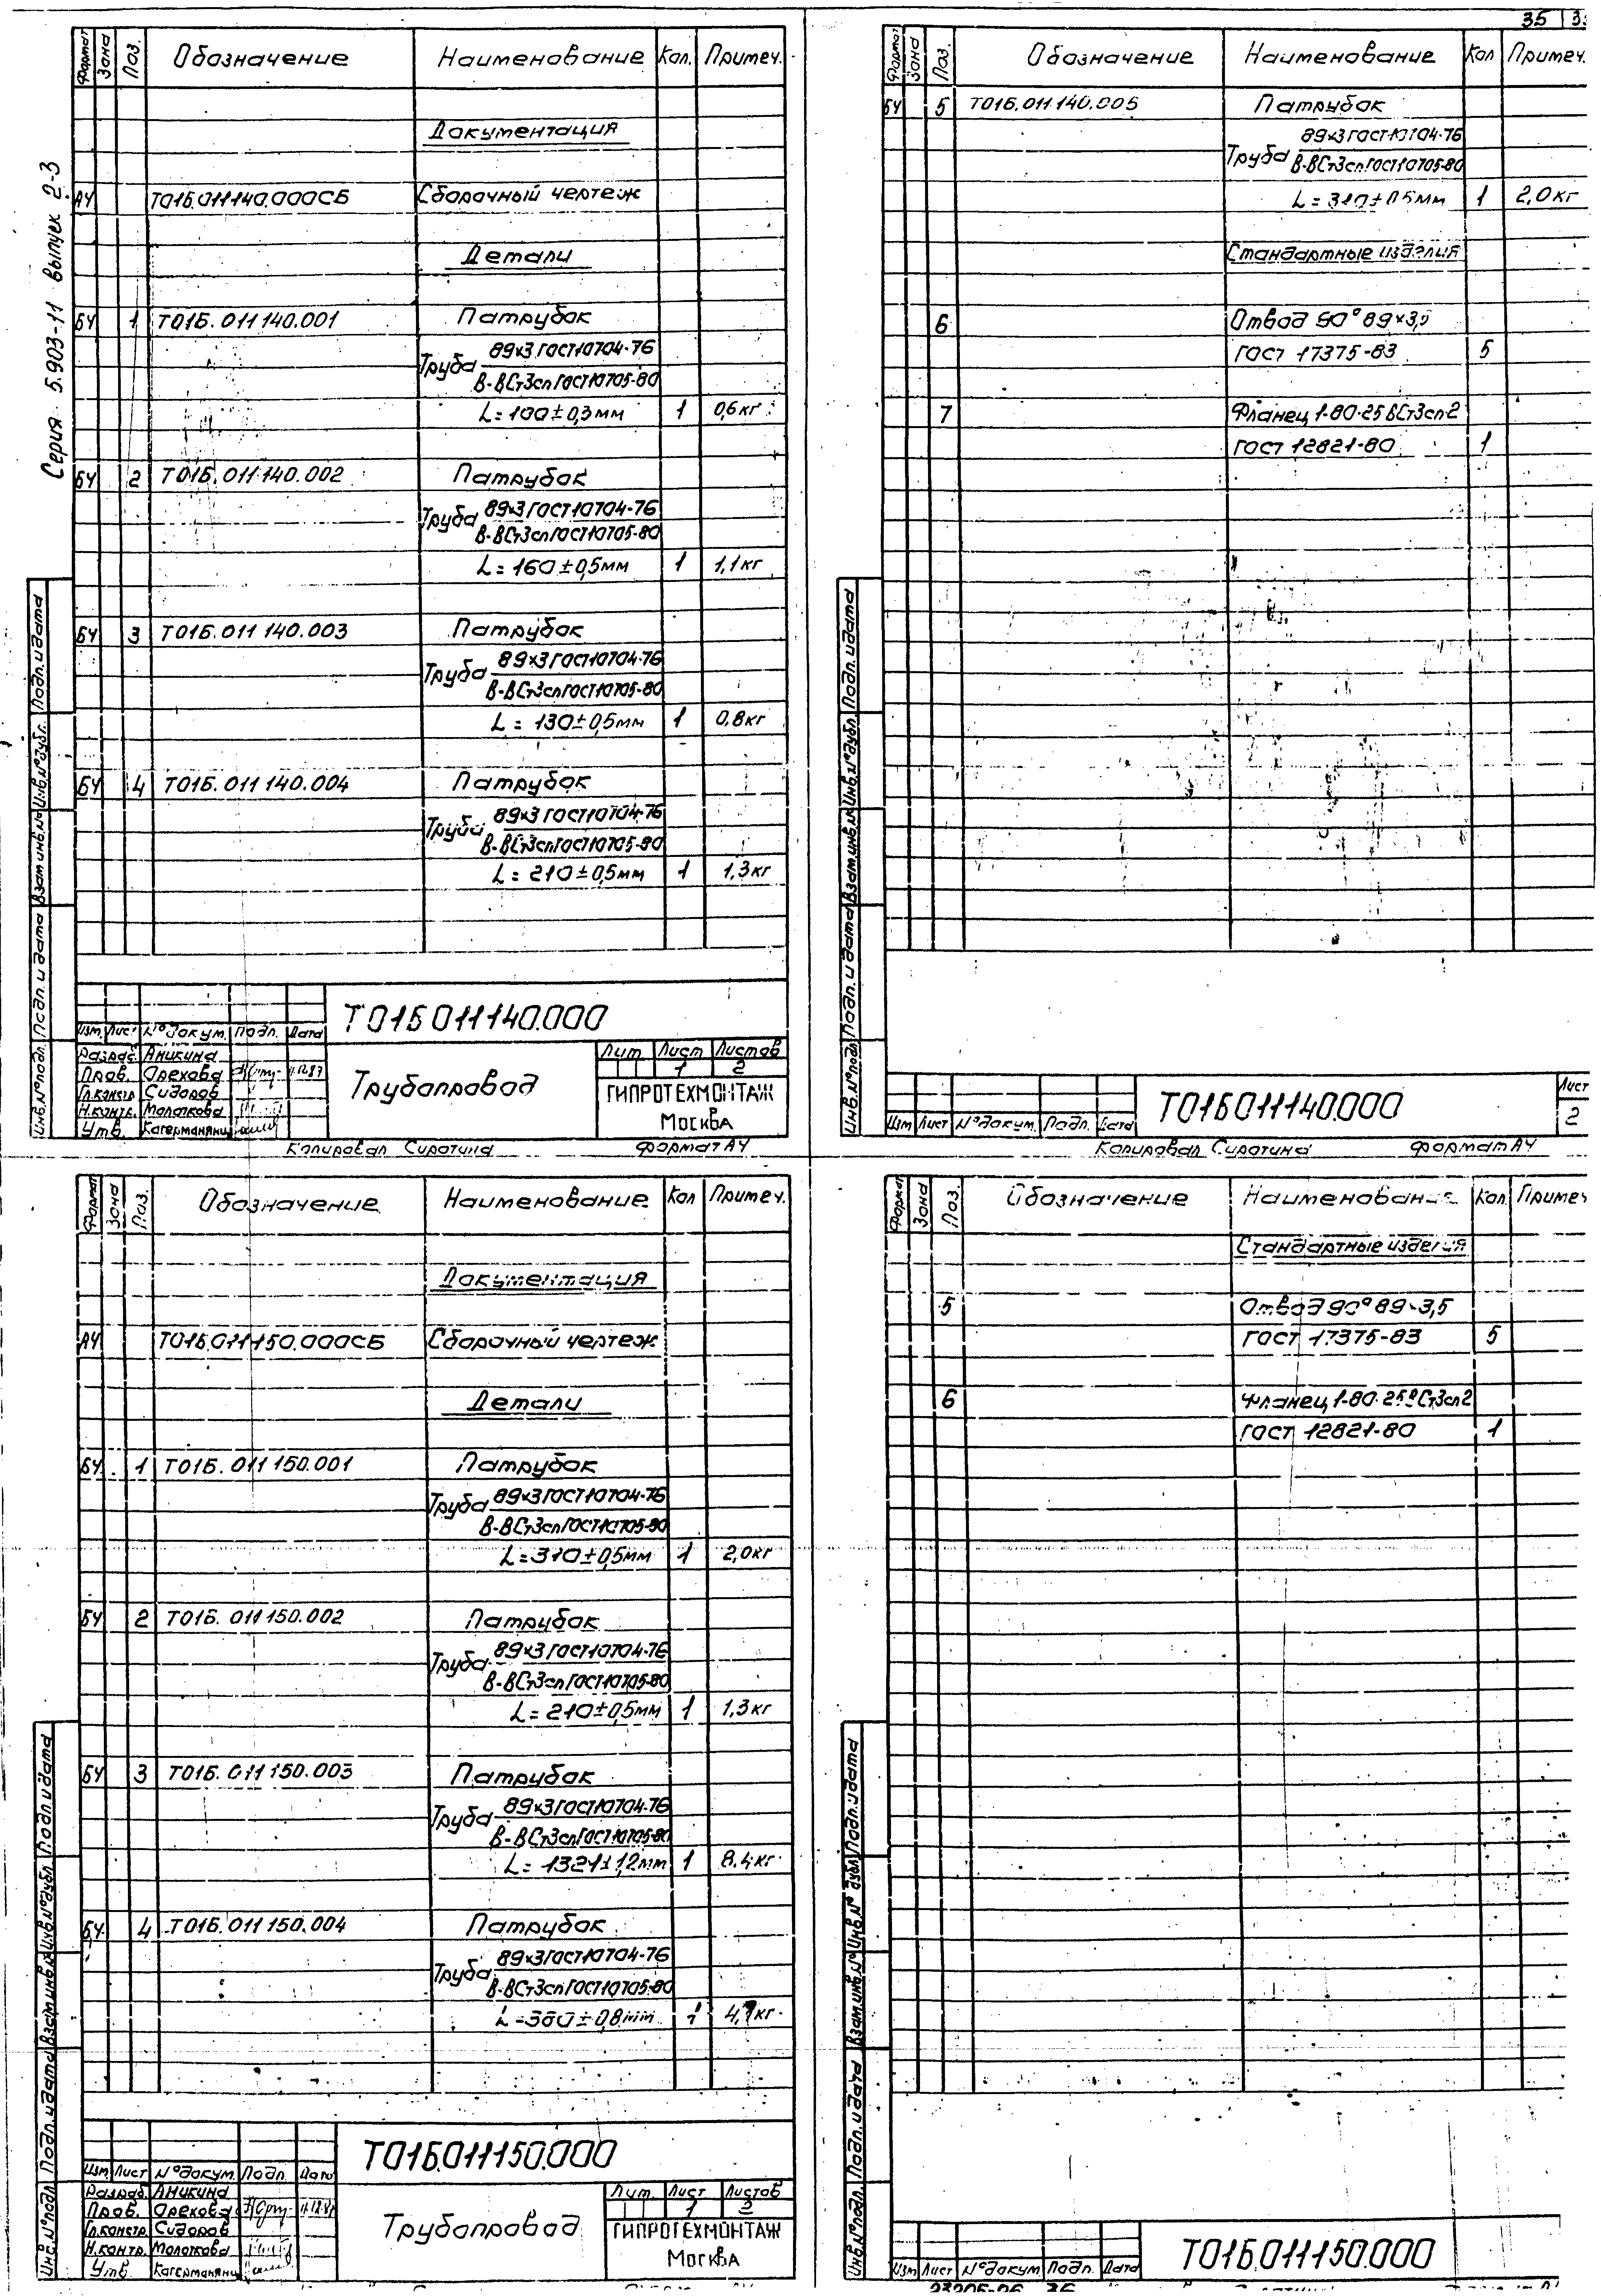 35
Серия 5.903-11 выпуск 2-3
Формат Зона Поз. Обозначение Наименование Кол. Примеч.
Документация
А4 Т01Б.011140.000СБ Сборочный чертеж
Детали
БЧ 1 Т01Б.011140.001 Патрубок
Труба 89х3 ГОСТ 10704-76
В-ВСт3сп ГОСТ 10705-80
L=100±0,3мм 1 0,6кг
БЧ 2 Т01Б.011140.002 Патрубок
Труба 89х3 ГОСТ 10704-76
В-ВСт3сп ГОСТ 10705-80
L=160±0,5мм 1 1,1кг
БЧ 3 Т01Б.011140.003 Патрубок
Труба 89х3 ГОСТ 10704-76
В-ВСт3сп ГОСТ 10705-80
L=130±0,5мм 1 0,8кг
БЧ 4 Т01Б.011140.004 Патрубок
Труба 89х3 ГОСТ 10704-76
В-ВСт3сп ГОСТ 10705-80
L=210±0,5мм 1 1,3кг
Инв.№подл. Подп. и дата Взам.инв.№ Инв.№дубл. Подп. и дата
Т01Б011140.000
Изм. Лист №докум. Подп. Дата
Разраб. Аникина
Пров. Орехова 11.12.87
Гл.констр. Сидоров
Н.контр. Молоткова
Утв. Кагерманянц
Трубопровод
Лит. Лист Листов
1 2
ГИПРОТЕХМОНТАЖ
Москва
Копировал Сиротина Формат А4
Формат Зона Поз. Обозначение Наименование Кол Примеч.
БЧ 5 Т01Б.011140.005 Патрубок
Труба 89х3 ГОСТ 10704-76
В-ВСт3сп ГОСТ 10705-80
L=310±0,5мм 1 2,0кг
Стандартные изделия
6 Отвод 90° 89х3,5
ГОСТ 17375-83 5
7 Фланец 1-80-25 ВСт3сп2
ГОСТ 12821-80 1
Инв.№подл. Подп. и дата Взам.инв.№ Инв.№дубл. Подп. и дата
Изм Лист №докум. Подп. Дата
Т01Б011140.000
Лист
2
Копировал Сиротина Формат А4
Формат Зона Поз. Обозначение Наименование Кол Примеч.
Документация
А4 Т01Б.011150.000СБ Сборочный чертеж
Детали
БЧ 1 Т01Б.011150.001 Патрубок
Труба 89х3 ГОСТ 10704-76
В-ВСт3сп ГОСТ 10705-80
L=310±0,5мм 1 2,0кг
БЧ 2 Т01Б.011150.002 Патрубок
Труба 89х3 ГОСТ 10704-76
В-ВСт3сп ГОСТ 10705-80
L=210±0,5мм 1 1,3кг
БЧ 3 Т01Б.011150.003 Патрубок
Труба 89х3 ГОСТ 10704-76
В-ВСт3сп ГОСТ 10705-80
L=1321±1,2мм 1 8,4кг
БЧ 4 Т01Б.011150.004 Патрубок
Труба 89х3 ГОСТ 10704-76
В-ВСт3сп ГОСТ 10705-80
1
Инв.№подл. Подп. и дата Взам.инв.№ Инв.№дубл. Подп. и дата
Т01Б.011150.000
Изм Лист №докум. Подп. Дата
Разраб. Аникина
Пров. Орехова
Гл.констр. Сидоров
Н.контр. Молоткова
Утв. Кагерманянц
Трубопровод
Лит. Лист Листов
1 2
ГИПРОТЕХМОНТАЖ
Москва
Формат Зона Поз. Обозначение Наименование Кол. Примеч
Стандартные изделия
5 Отвод 90° 89х3,5
ГОСТ 17375-83 5
6 Фланец 1-80-25 ВСт3сп2
ГОСТ 12821-80 1
Инв.№подл. Подп. и дата Взам.инв.№ Инв.№дубл. Подп. и дата
Изм Лист №докум. Подп. Дата
Т01Б.011150.000